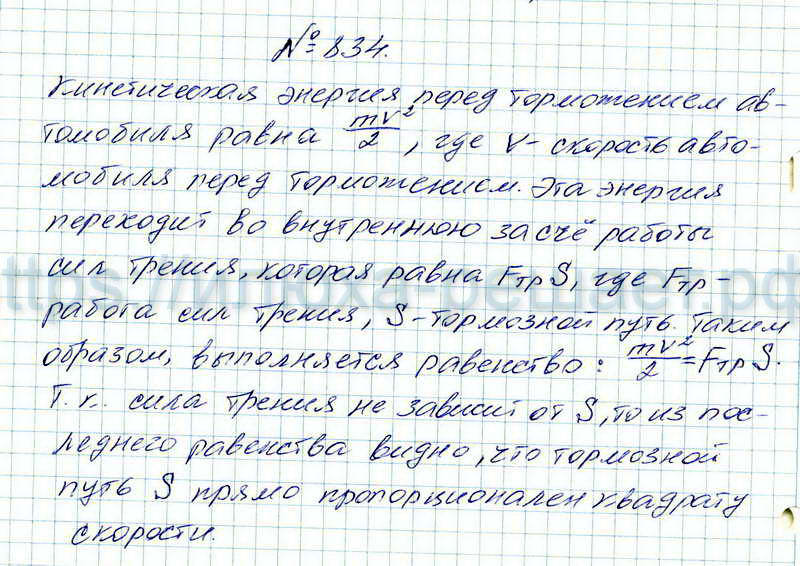 № 834.
Кинетическая энергия перед торможением ав-
томобиля равна mv²/2, где v - скорость авто-
мобиля перед торможением. Эта энергия
переходит во внутреннюю за счё работы
сил трения, которая равна Fтр S, где Fтр -
работа сил трения, S - тормозной путь. Таким
образом, выполняется равенство: mv²/2 = Fтр S.
Т.к. сила трения не зависит от S, то из пос-
леднего равенства видно, что тормозной
путь S прямо пропорционален квадрату
скорости.